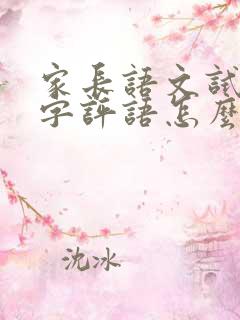 家長語文試
字評語怎麼
沈冰